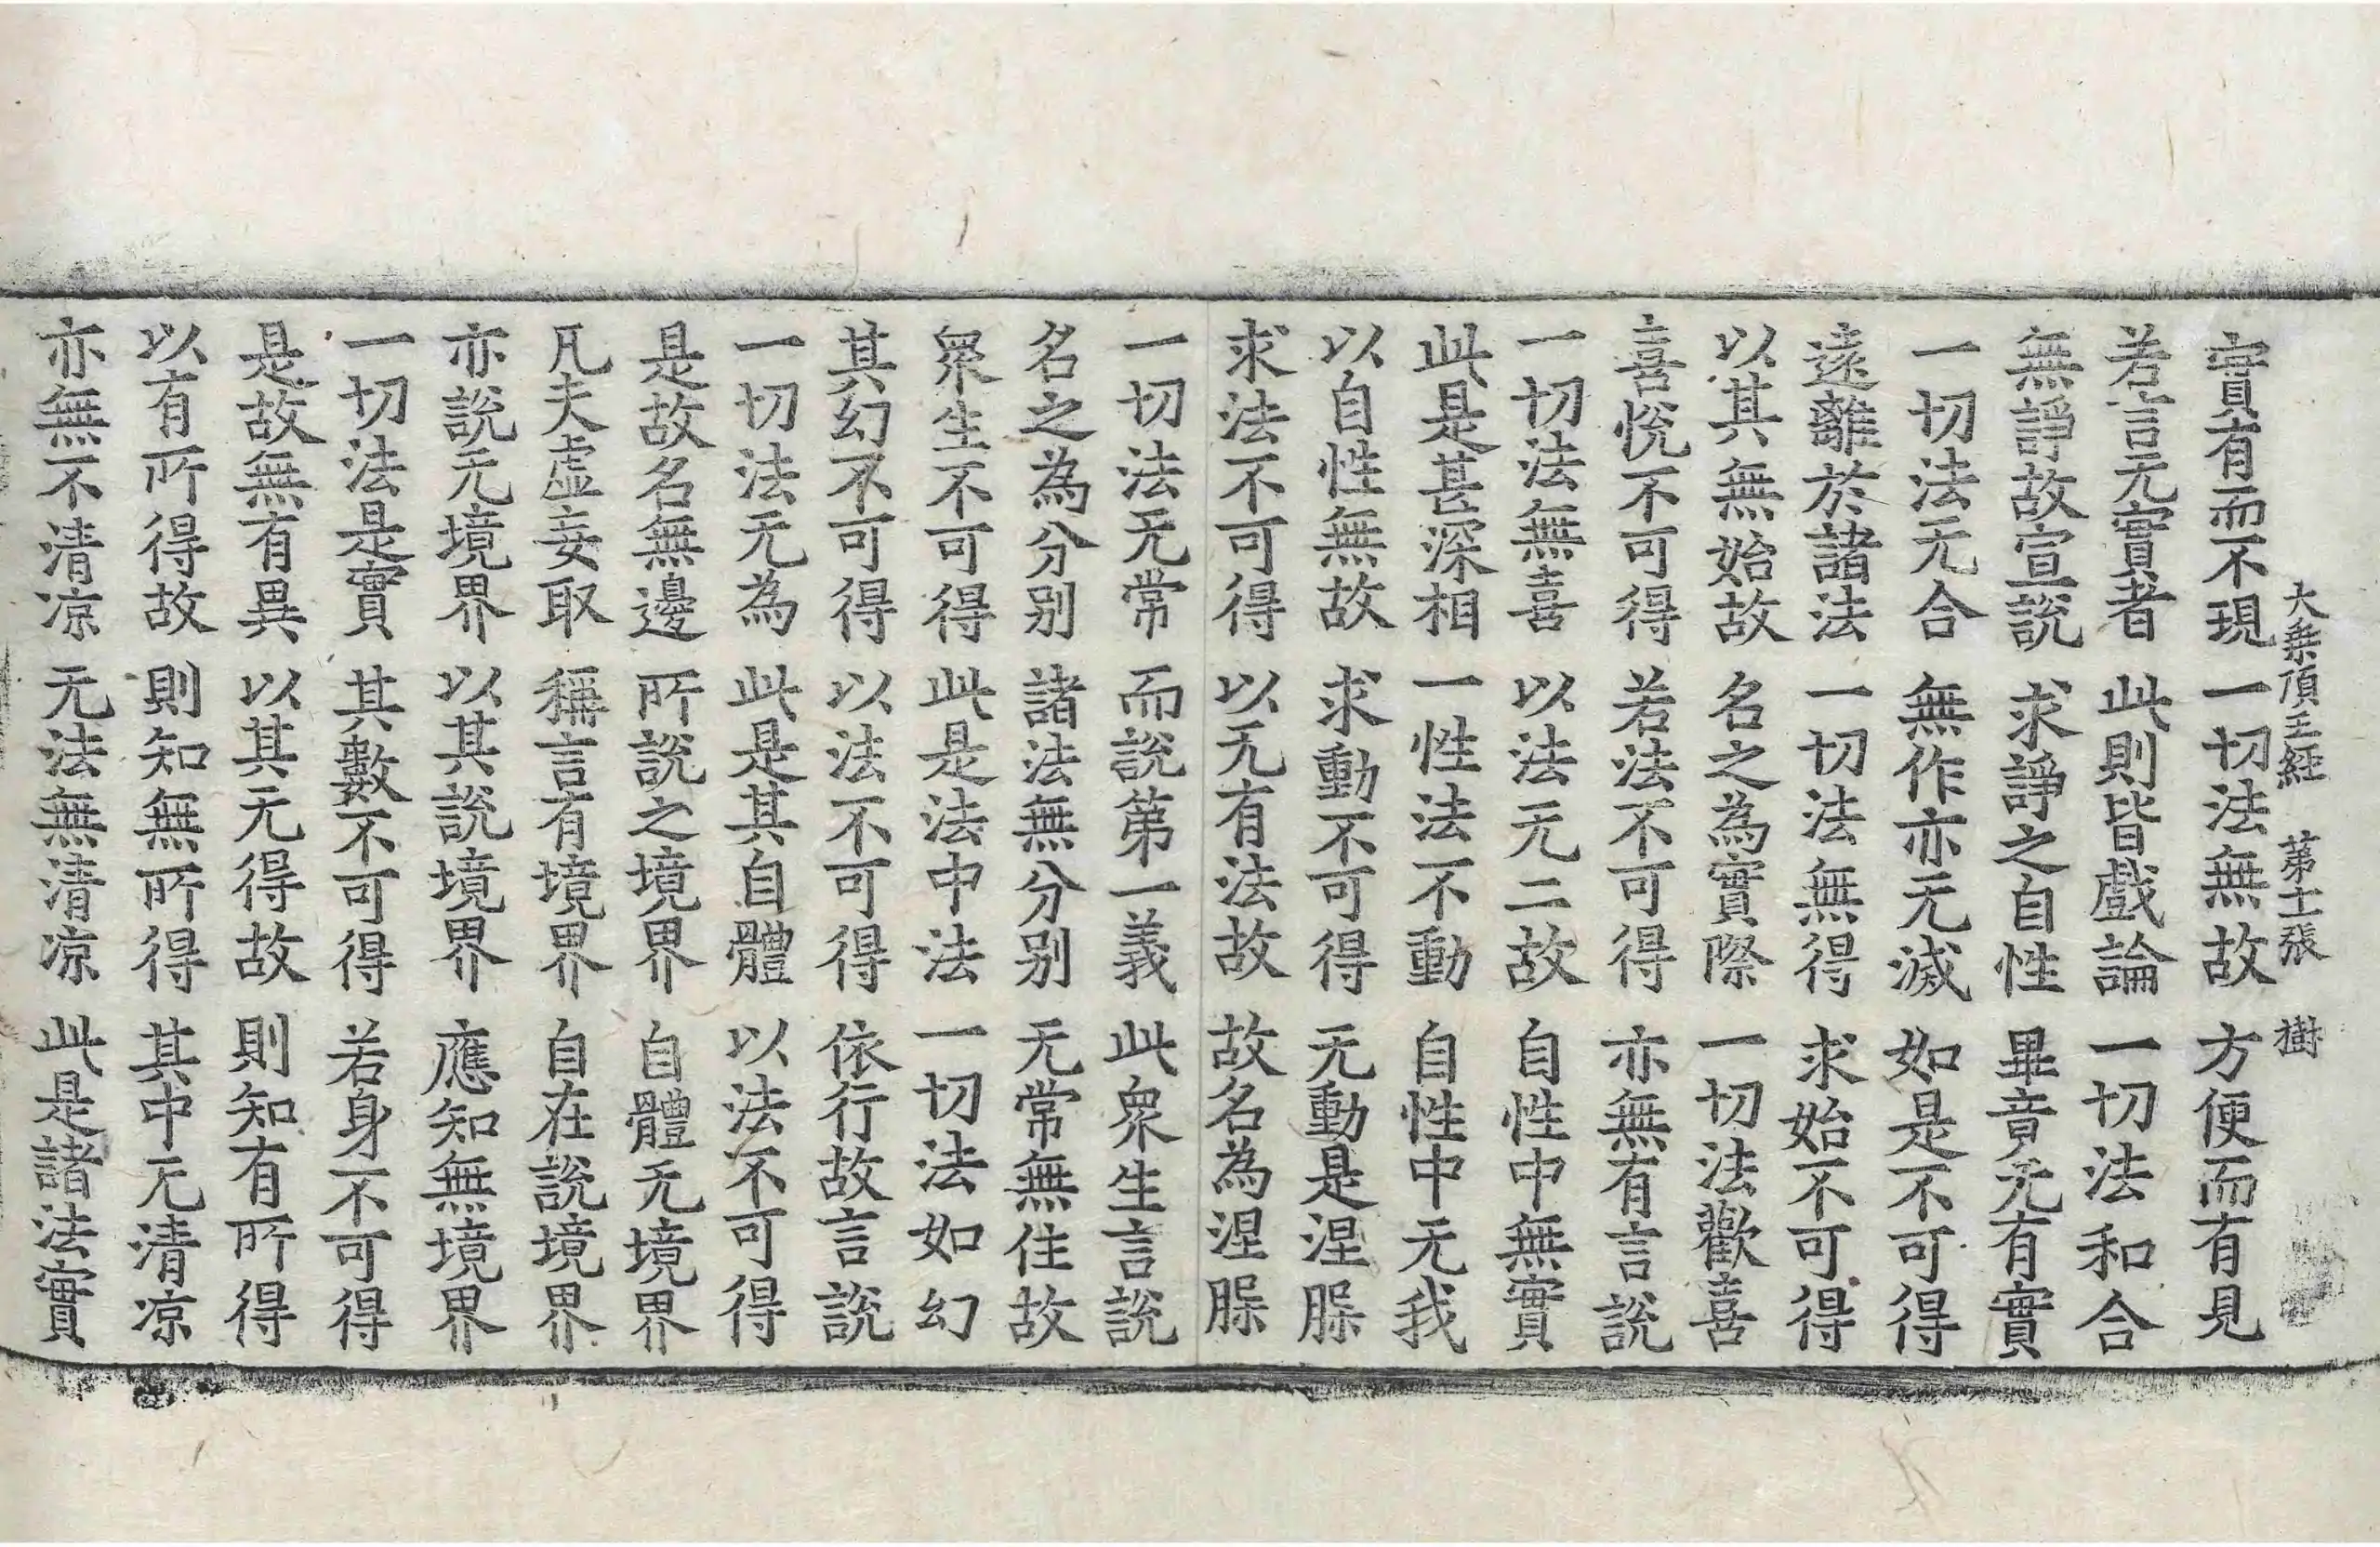 大乗頂王經 第十二張 樹
實有而不現 一切法無故 方便而有見
若言无實者 此則皆戲論 一切法和合
無諍故宣說 求諍之自性 畢竟无有實
一切法无合 無作亦无滅 如是不可得
遠離於諸法 一切法無得 求始不可得
以其無始故 名之為實際 一切法歡喜
喜悅不可得 若法不可得 亦無有言說
一切法無喜 以法无二故 自性中無實
此是甚深相 一性法不動 自性中无我
以自性無故 求動不可得 无動是涅槃
求法不可得 以无有法故 故名為涅槃
一切法无常 而說第一義 此衆生言說
名之為分別 諸法無分別 无常無住故
衆生不可得 此是法中法 一切法如幻
其幻不可得 以法不可得 依行故言說
一切法无為 此是其自體 以法不可得
是故名無邊 所說之境界 自體无境界
凡夫虛妄取 稱言有境界 自在說境界
亦說无境界 以其說境界 應知無境界
一切法是實 其數不可得 若身不可得
是故無有異 以其无得故 則知有所得
以有所得故 則知無所得 其中无清凉
亦無不清凉 无法無清凉 此是諸法實